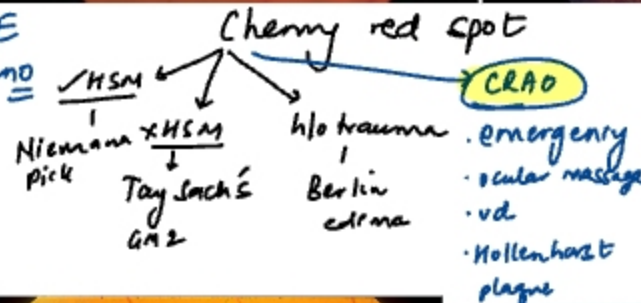 E
mo
Cherry red spot
✓HSM
Niemann
Pick
×HSM
Tay Sach's
GM2
h/o trauma
Berlin
edema
CRAO
· emergency
· ocular massage
· vd
· Hollenhorst
plaque